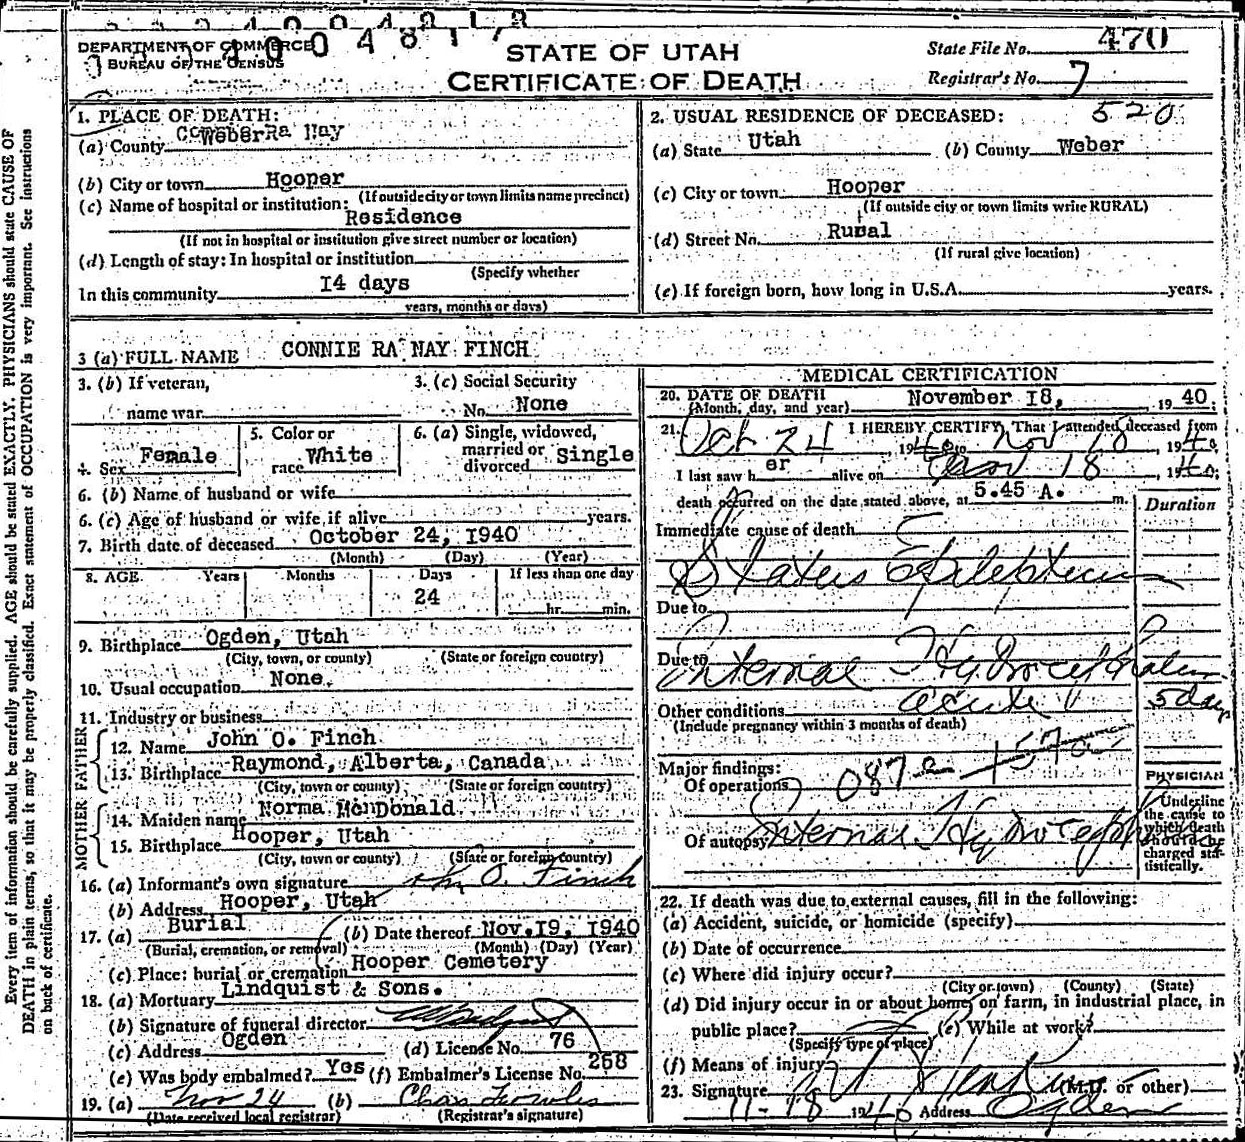 DEPARTMENT OF COMMERCE
BUREAU OF THE CENSUS
STATE OF UTAH
CERTIFICATE OF DEATH
State File No. 470
Registrar's No. 7
Every item of information should be carefully supplied. AGE should be stated EXACTLY. PHYSICIANS should state CAUSE OF
DEATH in plain terms, so that it may be properly classified. Exact statement of OCCUPATION is very important. See instructions
on back of certificate.
1. PLACE OF DEATH:
(a) County Weber
(b) City or town Hooper
(If outside city or town limits name precinct)
(c) Name of hospital or institution:
Residence
(If not in hospital or institution give street number or location)
(d) Length of stay: In hospital or institution
(Specify whether
In this community 14 days
years, months or days)
2. USUAL RESIDENCE OF DECEASED: 520
(a) State Utah (b) County Weber
(c) City or town: Hooper
(If outside city or town limits write RURAL)
(d) Street No. Rural
(If rural give location)
(e) If foreign born, how long in U.S.A. years.
3 (a) FULL NAME CONNIE RA NAY FINCH
3. (b) If veteran,
name war
3. (c) Social Security
No. None
4. Sex Female
5. Color or
race White
6. (a) Single, widowed,
married or
divorced Single
6. (b) Name of husband or wife
6. (c) Age of husband or wife, if alive years.
7. Birth date of deceased October 24, 1940
(Month) (Day) (Year)
8. AGE Years Months Days If less than one day
24 hr. min.
9. Birthplace Ogden, Utah
(City, town, or county) (State or foreign country)
10. Usual occupation None
11. Industry or business
FATHER
12. Name John O. Finch
13. Birthplace Raymond, Alberta, Canada
(City, town or county) (State or foreign country)
MOTHER
14. Maiden name Norma McDonald
15. Birthplace Hooper, Utah
(City, town or county) (State or foreign country)
16. (a) Informant's own signature John O. Finch
(b) Address Hooper, Utah
17. (a) Burial (b) Date thereof Nov. 19, 1940
(Burial, cremation, or removal) (Month) (Day) (Year)
(c) Place: burial or cremation Hooper Cemetery
18. (a) Mortuary Lindquist & Sons.
(b) Signature of funeral director
(c) Address Ogden (d) License No. 76
(e) Was body embalmed? Yes (f) Embalmer's License No. 268
19. (a) Nov 24 (b) Chas
(Date received local registrar) (Registrar's signature)
MEDICAL CERTIFICATION
20. DATE OF DEATH
(Month, day, and year) November 18, 1940.
21. I HEREBY CERTIFY, That I attended deceased from
Oct 24 1940 to Nov 18, 1940
I last saw her alive on Nov 18 1940,
death occurred on the date stated above, at 5.45 A. m.
Duration
Immediate cause of death
Status Epilepticus
Due to
Due to Internal Hydrocephalus
acute 5 days
Other conditions
(Include pregnancy within 3 months of death)
Major findings:
Of operations 087a 157a
Of autopsy Internal Hydrocephalus
PHYSICIAN
Underline
the cause to
which death
should be
charged sta-
tistically.
22. If death was due to external causes, fill in the following:
(a) Accident, suicide, or homicide (specify)
(b) Date of occurrence
(c) Where did injury occur?
(City or town) (County) (State)
(d) Did injury occur in or about home, on farm, in industrial place, in
public place? (e) While at work?
(Specify type of place)
(f) Means of injury
23. Signature (M.D. or other)
11-18 1940 Address Ogden